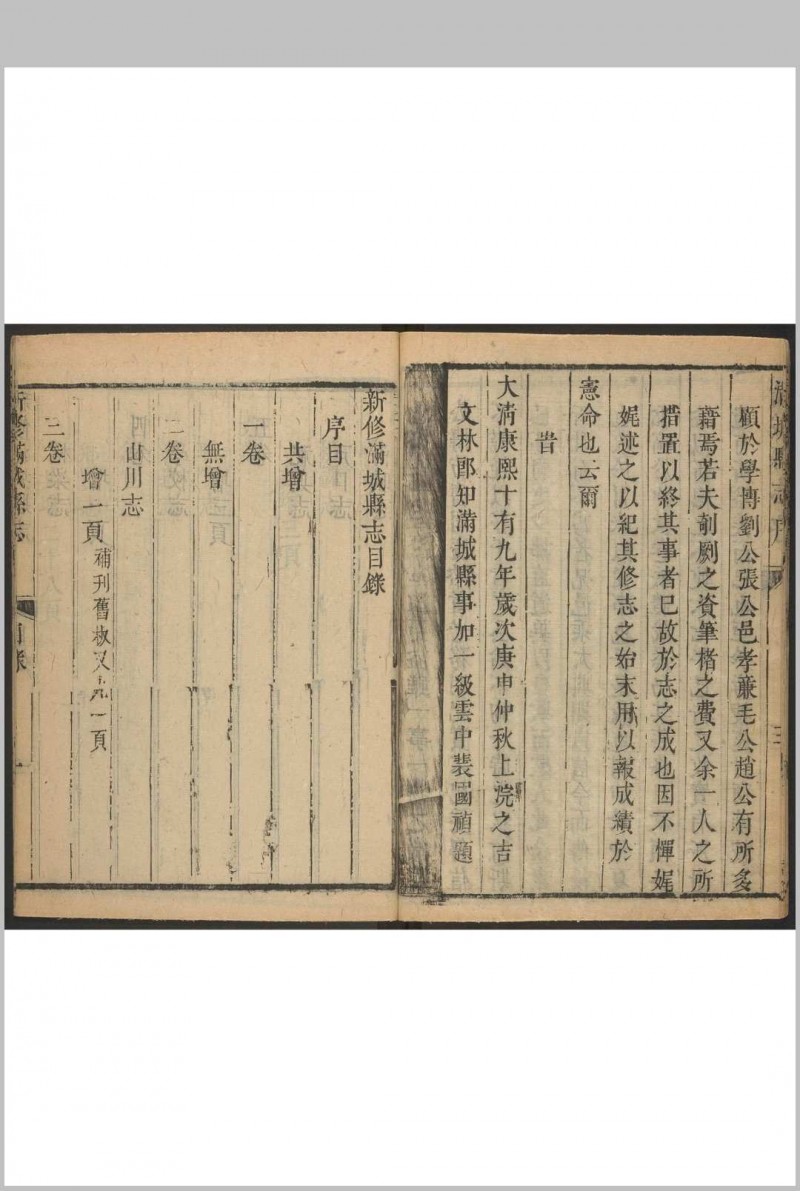 滿城縣志序
三
顧於學博劉公張公邑孝亷毛公趙公有所多
藉焉若夫剞劂之資筆楮之費又余一人之所
措置以終其事者巳故於志之成也因不憚娓
娓述之以紀其修志之始末用以報成績於
憲命也云爾
旹
大淸康熙十有九年歲次庚申仲秋上浣之吉
文林郎知滿城縣事加一級雲中裴國禎題
新修滿城縣志目錄
序目
共增
一卷
無增
二卷
山川志
增一頁補刋舊板又九一頁
三卷
新修滿城縣志
目錄
一